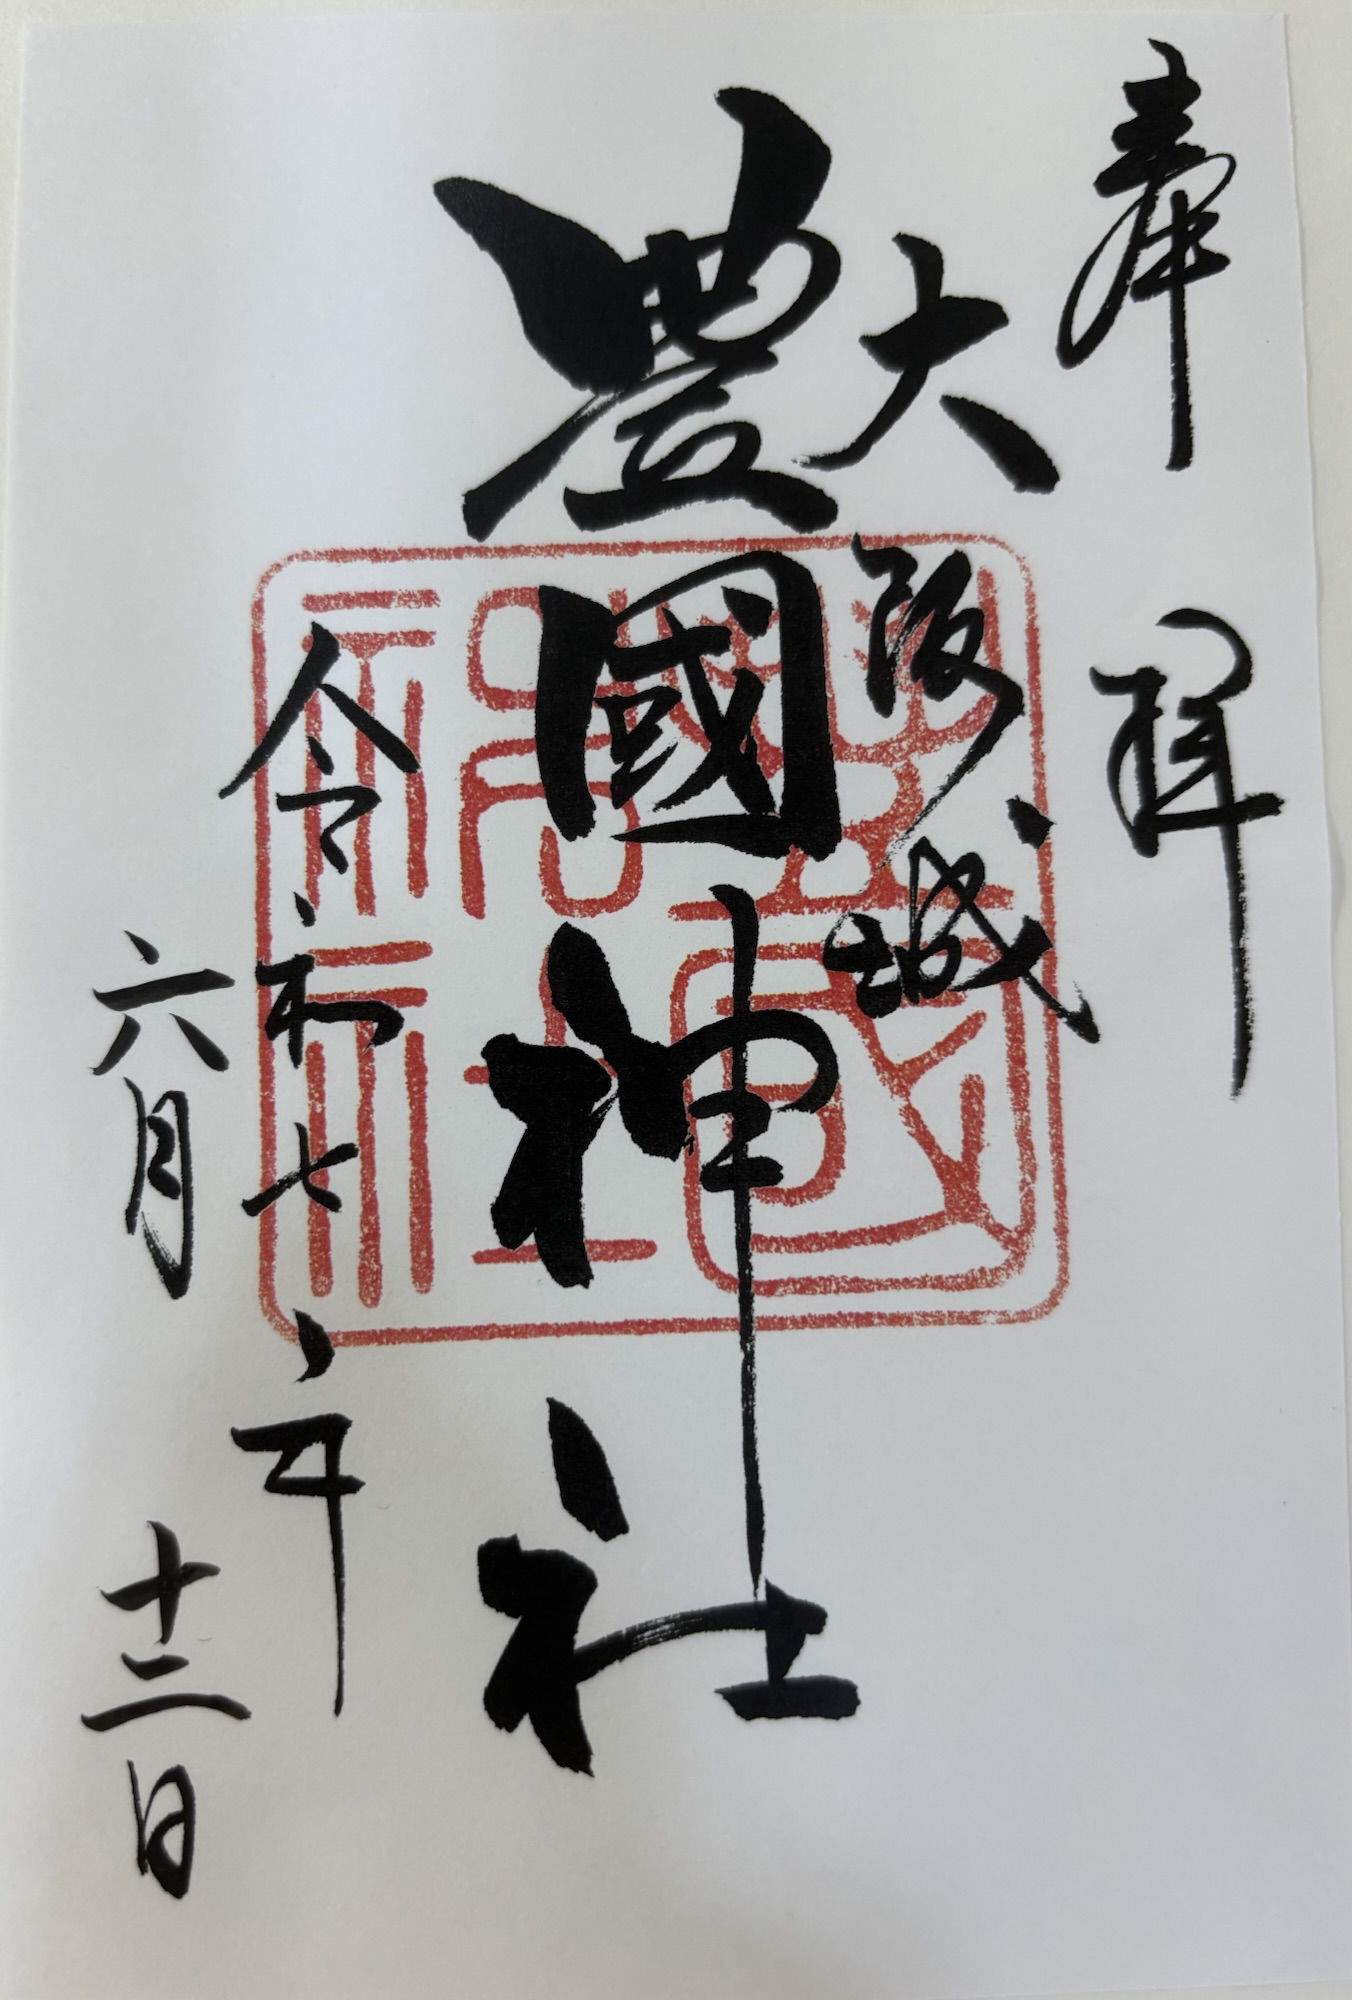 奉拝
大阪城
豊國神社
令和七年
六月十二日